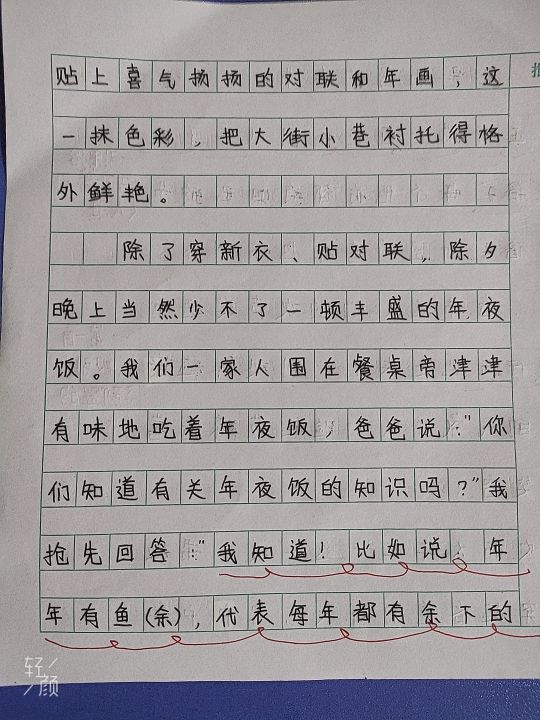 贴上喜气扬扬的对联和年画，这
一抹色彩，把大街小巷衬托得格
外鲜艳。
除了穿新衣、贴对联，除夕
晚上当然少不了一顿丰盛的年夜
饭。我们一家人围在餐桌旁津津
有味地吃着年夜饭，爸爸说："你
们知道有关年夜饭的知识吗？"我
抢先回答："我知道！比如说：年
年有鱼(余)，代表每年都有余下的
轻颜